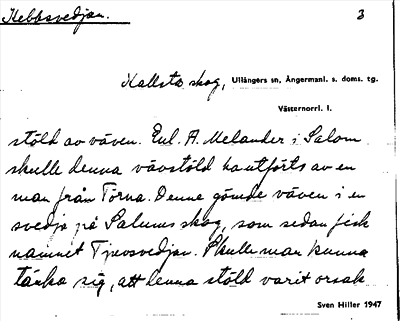 Kebbsvedjan. 3
Kallsta skog, Ullångers sn, Ångermanl. s. doms. tg.
Västernorrl. l.
stöld av väven. Enl. A. Melander i Salom
skulle denna vävstöld ha utförts av en
man från Torna. Denne gömde väven i en
svedje på Salums skog, som sedan fick
namnet Tjuvsvedjan. Skulle man kunna
tänka sig, att denna stöld varit orsak
Sven Hiller 1947